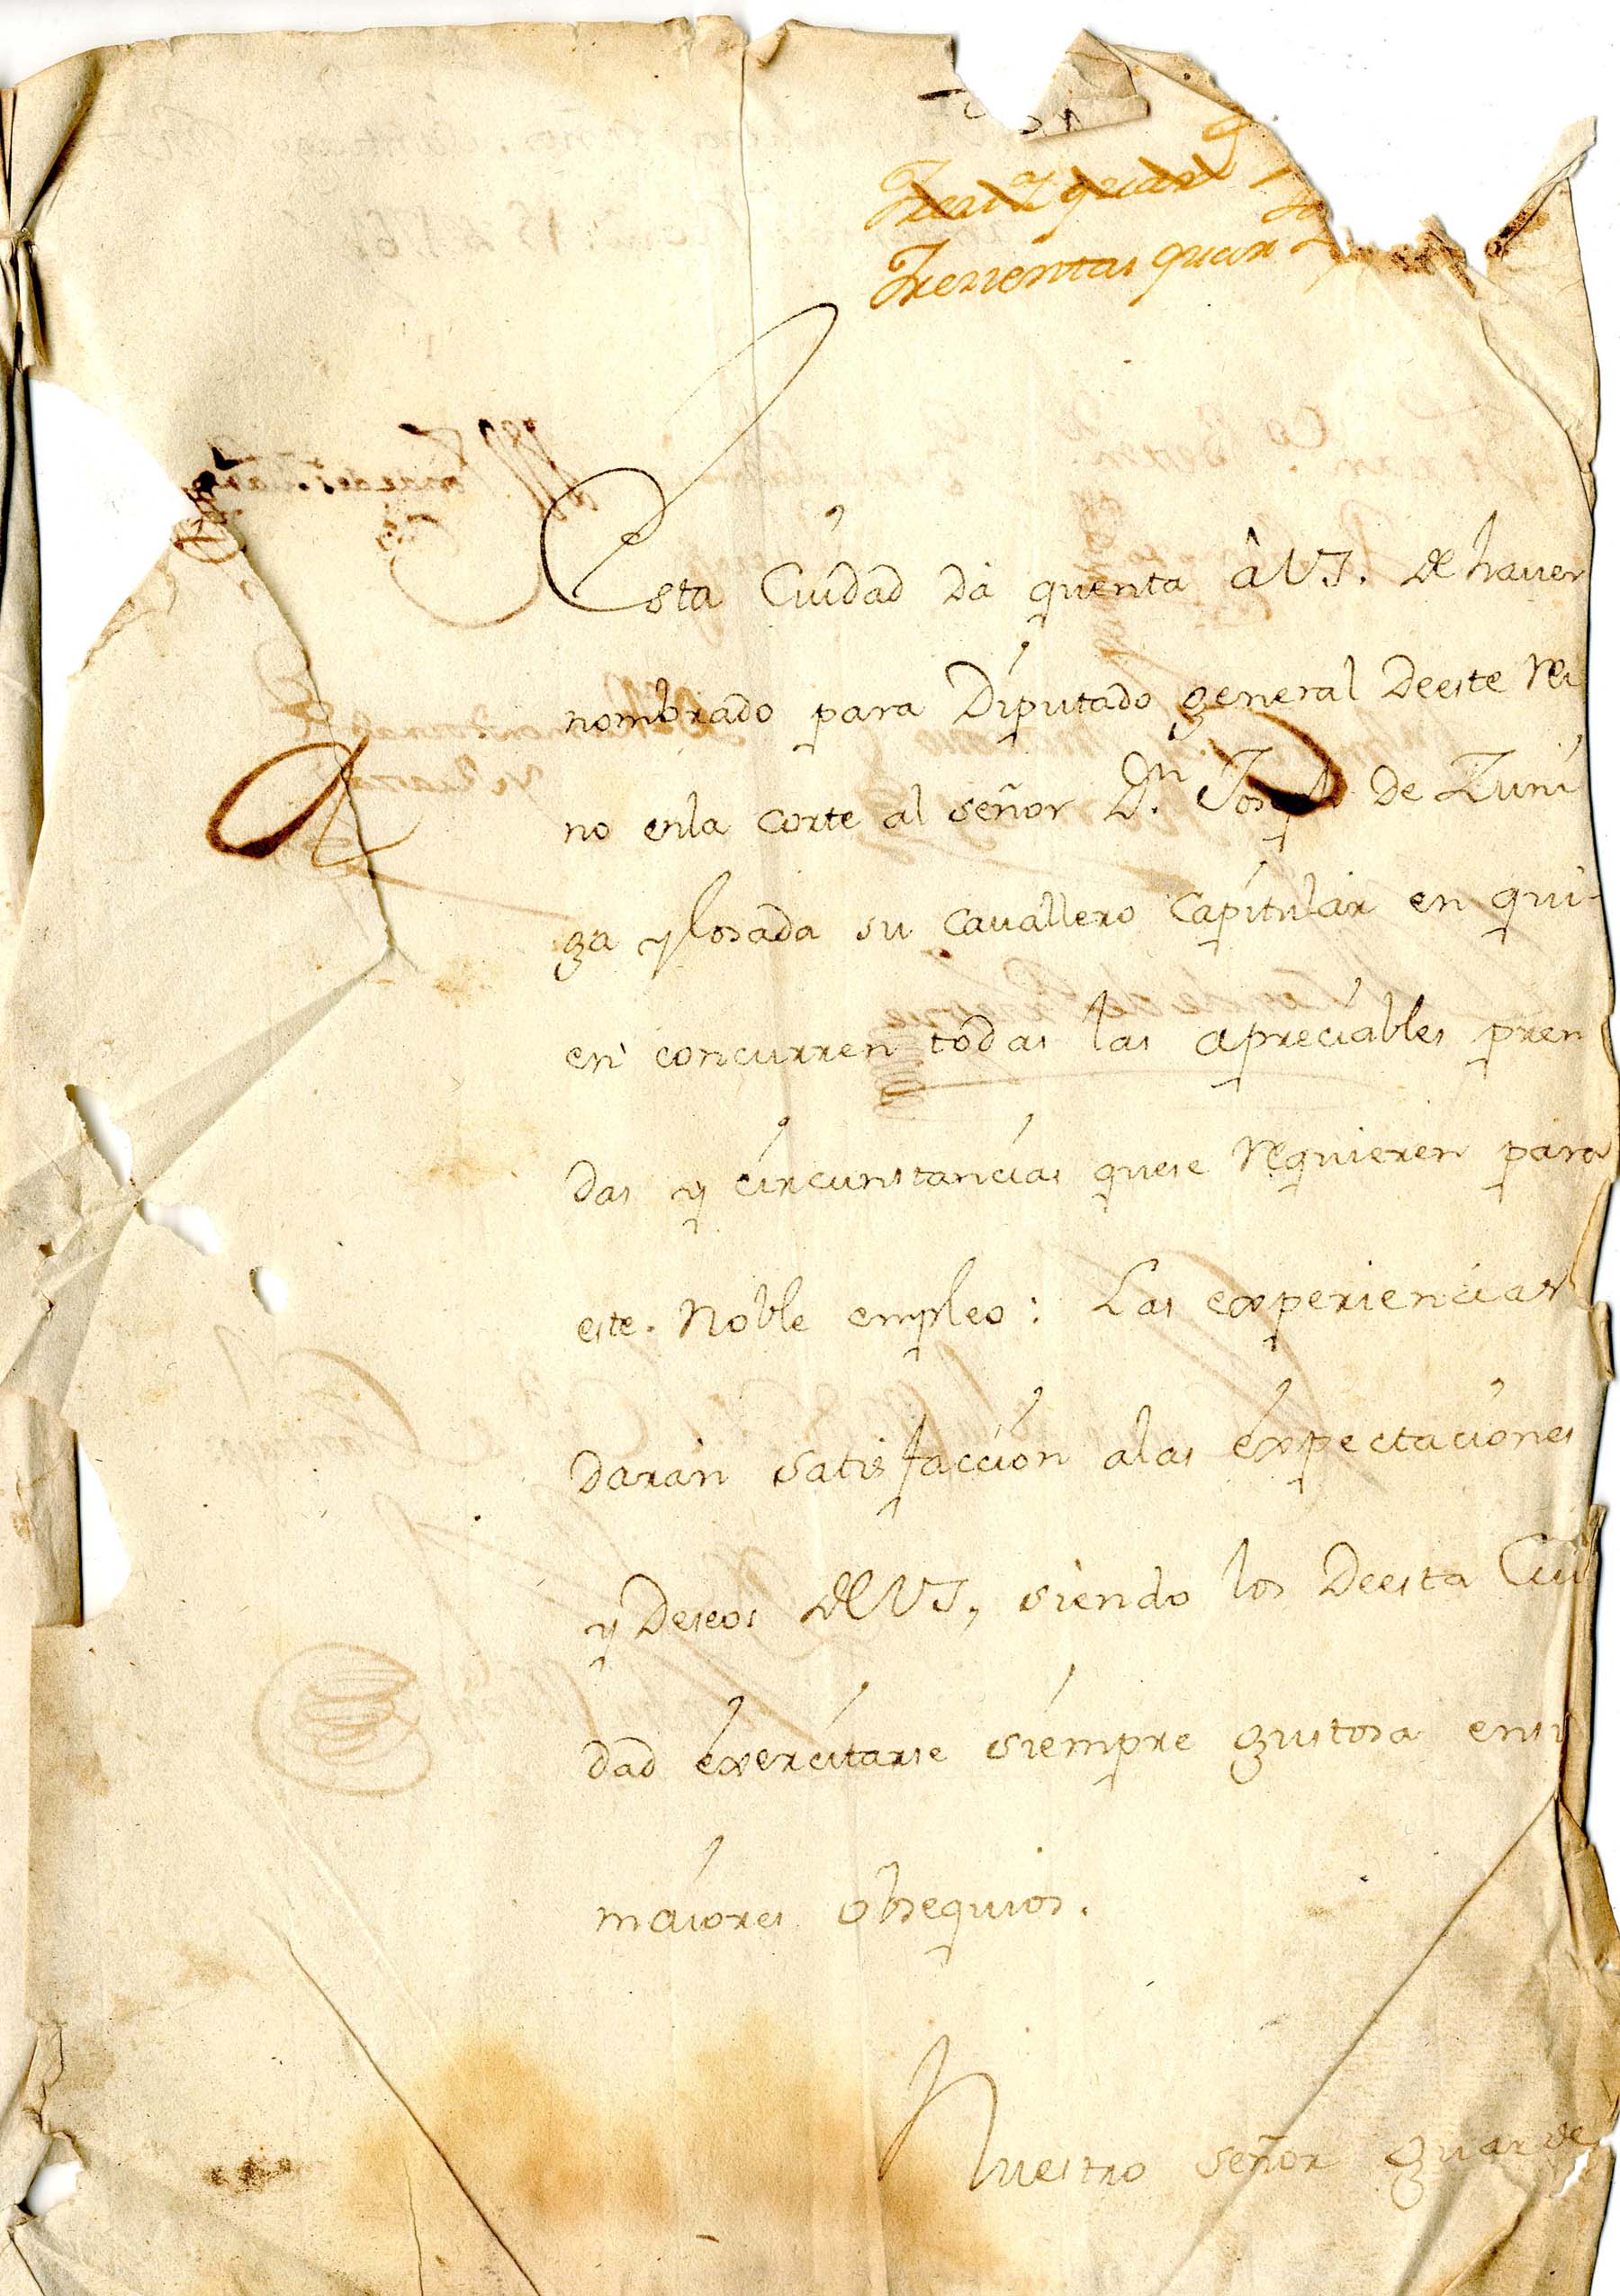 Trecientas quar
Esta Ciudad dà quenta â VS. de haver
nombrado para Diputado general de este Rei
no en la Corte al señor Dn. Joseph de Zuñi
ga y losada su Cavallero Capitular en qui-
en concurren todas las apreciables pren
das y circunstancias que se requieren para
este Noble empleo: Las experiencias
daràn satisfacciòn a las expectaciones
y deseos de VS, siendo los de esta Ciu
dad exercitarse siempre gustosa en su
màiores obsequios.
Nuestro señor guarde